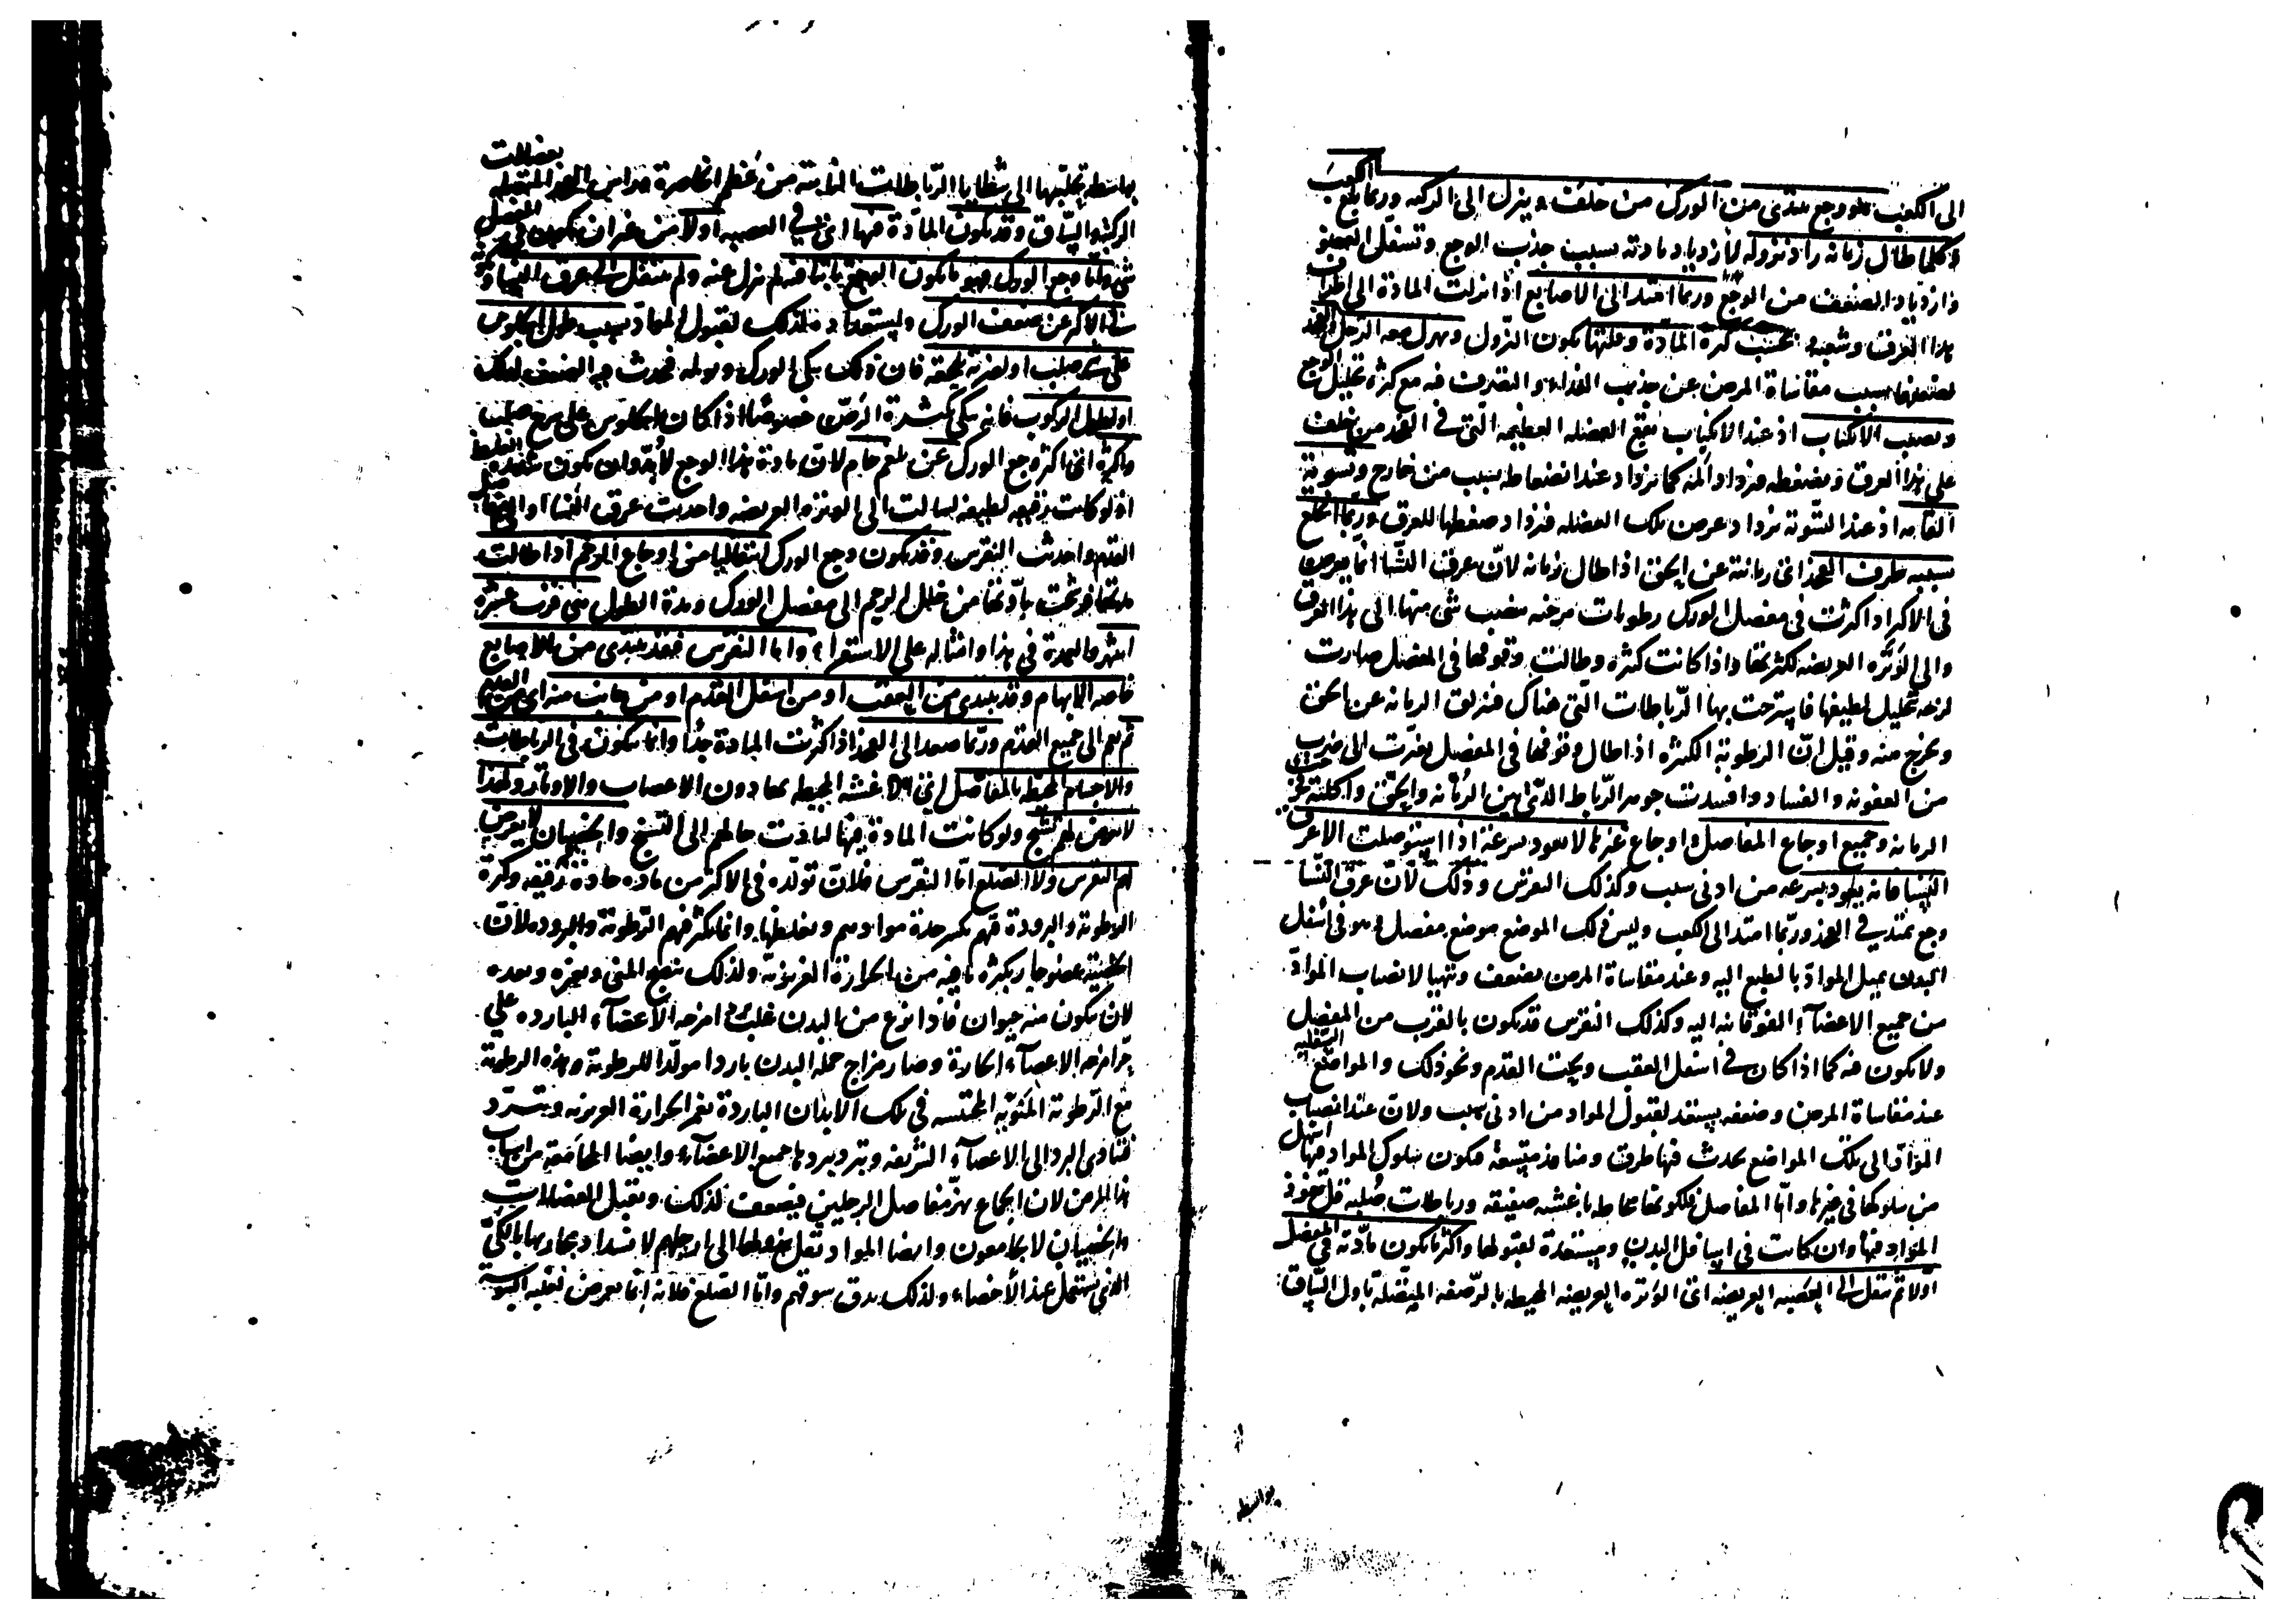 الى الكعب هو وجع يبتدى من الورك من خلف وينزل الى الركبة وربما بلغ الكعب
وكلما طال زمانه زاد نزوله لازدياد مادته بسبب جذب الوجع وتسفل العضو
وازدياد الضعف من الوجع وربما امتد الى الاصابع اذا نزلت المادة الى اطراف
هذا العرق وشعبه بحسب كثرة المادة وقلتها يكون النزول ويهزل معه الرجل والفخذ
لضعفها بسبب مقاساة المرض عن جذب الغذاء والتصرف فيه مع كثرة تحليل الوجع
ويصعب الانكباب اذ عند الانكباب تقع العضلة العظيمة التى فى الفخذ من خلف
على هذا العرق وتضغطه فيزداد المه كما يزداد عند انضغاطه بسبب من خارج وتسوية
القامة اذ عند التسوية يزداد عرض تلك العضلة فيزداد ضغطها للعرق وربما انخلع
بسببه طرف الفخذ اى رمانته عن الحق اذا طال زمانه لان عرق النسا انما يعرض
فى الاكثر اذا كثرت فى مفصل الورك رطوبات مرخية ينصب شئ منها الى هذا العرق
والى الوترة العريضة لكثرتها واذا كانت كثيرة وطالت وقوفها فى المفصل صارت
لزجة بتحليل لطيفها فاسترخت بها الرباطات التى هناك فتزلق الرمانة عن الحق
وتخرج منه وقيل ان الرطوبة الكثيرة اذا طال وقوفها فى المفصل تغيرت الى ضرب
من العفونة والفساد وافسدت جوهر الرباط الذى بين الرمانة والحق واكلته حتى تخرج
الرمانة وجميع اوجاع المفاصل واوجاع غيرها لا يعود بسرعة اذا استوصلت الا عرق
النسا فانه يعود بسرعة من ادنى سبب وكذلك النقرس وذلك لان عرق النسا
وجع يمتد فى الفخذ وربما امتد الى الكعب وليس ذلك الموضع موضع مفصل وهو فى اسفل
البدن يميل المواد بالطبع اليه وعند مقاساة المرض يضعف ويتهيا لانصباب المواد
من جميع الاعضاء الفوقانية اليه وكذلك النقرس قد يكون بالقرب من المفصل
ولا يكون فيه كما اذا كان فى اسفل العقب وتحت القدم ونحو ذلك والمواضع السفلية
عند مقاساة المرض وضعفه يستعد لقبول المواد من ادنى سبب ولان عند انصباب
المواد الى تلك المواضع يحدث فيها طرق ومنافذ متسعة فيكون سلوك المواد فيها اسهل
من سلوكها فى غيرها واما المفاصل فلكونها محاطة باغشية صفيقة ورباطات صلبة قل نفوذ
المواد فيها وان كانت فى اسافل البدن ومستعدة لقبولها واكثر ما يكون مادته فى المفصل
اولا ثم تنتقل الى العصبة العريضة اى الوترة العريضة المحيطة بالرضفة المتصلة باول الساق
بواسطة
بواسطة تحلبها الى شظايا الرباطات النابتة من عظم الخاصرة وراس الفخذ المتصلة بعضلات
الركبة والساق وقد يكون المادة فيها اى فى العصبة اولا من غير ان يكون فى المفصل
شئ واما وجع الورك فهو ما يكون الوجع ثابتا فيه لم ينزل عنه ولم ينتقل الى عرق النسا
فى الاكثر عن ضعف الورك واستعداد لذلك لقبول المواد بسبب طول الجلوس
على شئ صلب او لضربة تلحقه فان ذلك ينكى الورك ويولمه فيحدث فيه الضعف لذلك
او لطول الركوب فانه ينكى بشدة الرض خصوصا اذا كان الجلوس على سرج صلب
واكثره اى اكثر وجع الورك عن بلغم خام لان مادة هذا الوجع لابد وان يكون شديدة الغلظ
اذ لو كانت رقيقة لطيفة لسالت الى الوترة العريضة واحدثت عرق النسا او الى مفاصل
القدم واحدثت النقرس وقد يكون وجع الورك انتقاليا من اوجاع الرحم اذا طالت
مدتها من خلل الرحم الى مفصل الورك ومدة الطول هى قرب عشرة
اشهر والعمدة فى هذا وامثاله على الاستقراء واما النقرس فقد يبتدى من الاصابع
خاصة الابهام وقد يبتدى من العقب او من اسفل القدم او من جانب منه اى من القدم
ثم يعم الى جميع القدم وربما صعد الى الفخذ اذا كثرت المادة جدا وانما يكون فى الرباطات
والاجسام المحيطة بالمفاصل اى الاغشية المحيطة بها دون الاعصاب والاوتار ولهذا
لا يعرض لهم تشنج ولو كانت المادة فيها لتادت حالهم الى التشنج والخصيان لا يعرض
لهم النقرس ولا الصلع اما النقرس فلان تولده فى الاكثر من مادة حادة رقيقة وكثرة
الرطوبة والبرودة فيهم يكسر حدة موادهم ويغلظها وانما يكثر فيهم الرطوبة والبرودة لان
الخصية عضو حار بكثرة ما فيه من الحرارة الغريزية ولذلك ينضج المنى ويغيره ويعده
لان يكون منه حيوان فاذا نزع من البدن غلبت امزجة الاعضاء الباردة على
امزجة الاعضاء الحارة وصار مزاج جملة البدن باردا مولدا للرطوبة وهذه الرطوبة
مع الرطوبة المنوية المحتبسة فى تلك الابدان الباردة تغمر الحرارة الغريزية ويتبرد
فتتادى البرد الى الاعضاء الشريفة وتبرد ببردها جميع الاعضاء وايضا المجامعة من اسباب
هذا المرض لان الجماع يهز مفاصل الرجلين فيضعف لذلك ويقبل الفضلات
والخصيان لا يجامعون وايضا المواد تقل هبوطها الى ارجلهم لانسداد مجاريها بالكى
الذى يستعمل عند الاخصاء ولذلك يدق سوقهم واما الصلع فلانه انما يعرض لغلبة اليبوسة